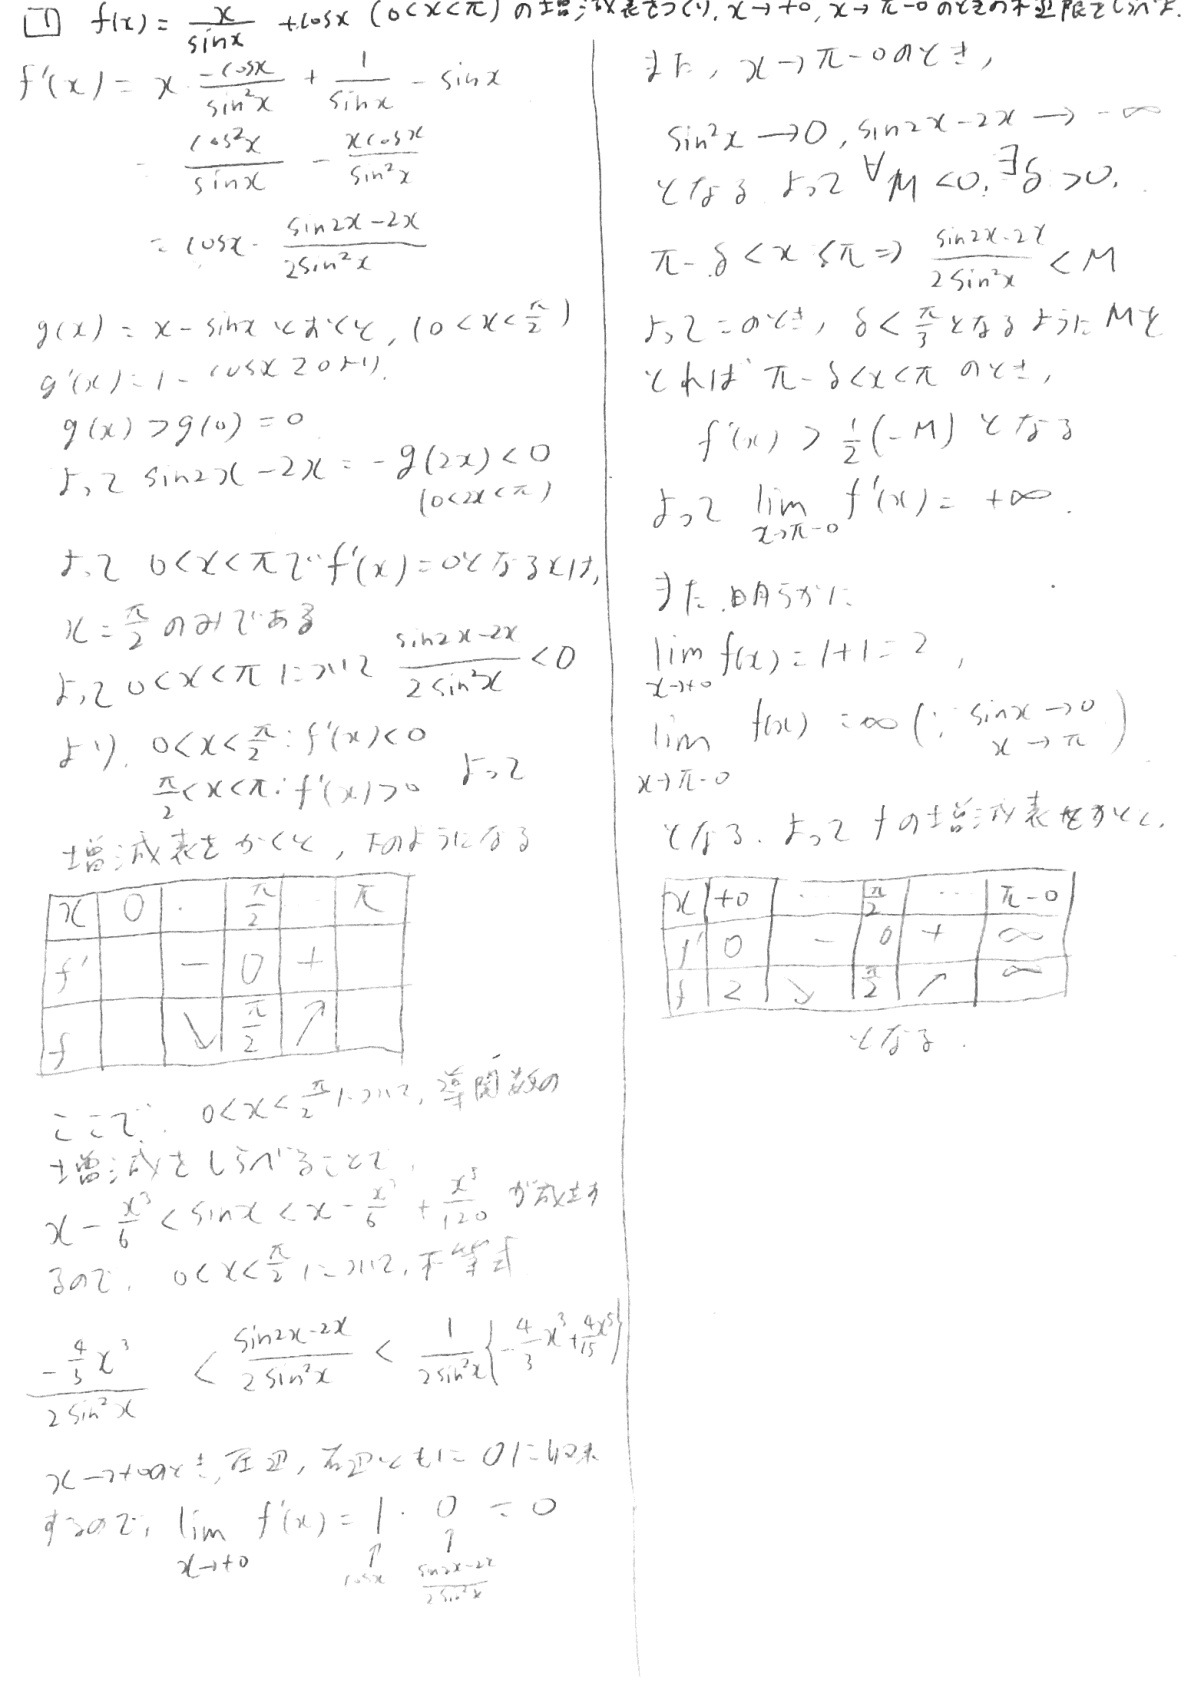 1 f(x) = x/sinx + cosx (0<x<π) の増減表をつくり, x→+0, x→π-0 のときの極限をしらべよ.
f'(x) = x・-cosx/sin²x + 1/sinx - sinx
= cos²x/sinx - xcosx/sin²x
= cosx・(sin2x-2x)/2sin²x
g(x) = x - sinx とおくと, (0<x<π/2)
g'(x) = 1 - cosx ≧0 より,
g(x) > g(0) = 0
よって sin2x - 2x = -g(2x) < 0
(0<2x<π)
よって 0<x<π で f'(x) = 0 となるxは,
x = π/2 のみである
よって 0<x<π について (sin2x-2x)/2sin²x < 0
より, 0<x<π/2 : f'(x)<0
π/2<x<π : f'(x)>0 よって
増減表をかくと, 下のようになる
x 0 ・ π/2 π
f' - 0 +
f ↘ π/2 ↗
ここで, 0<x<π/2 について, 導関数の
増減をしらべることで,
x - x³/6 < sinx < x - x³/6 + x⁵/120 が成立す
るので, 0<x<π/2 について, 不等式
-4/3x³/2sin²x < (sin2x-2x)/2sin²x < 1/2sin²x{-4/3x³+4x⁵/15}
x→+0のとき, 左辺, 右辺ともに 0に収束
するので, lim x→+0 f'(x) = 1・0 = 0
↑ ↑
cosx (sin2x-2x)/2sin²x
また, x→π-0 のとき,
sin²x → 0, sin2x-2x → -∞
となる よって ∀M<0, ∃δ>0,
π-δ<x<π ⇒ (sin2x-2x)/2sin²x < M
よってこのとき, δ<π/3 となるように Mを
とれば π-δ<x<π のとき,
f'(x) > 1/2(-M) となる
よって lim x→π-0 f'(x) = +∞.
また 明らかに
lim x→+0 f(x) = 1+1 = 2,
lim x→π-0 f(x) = ∞ (∵ sinx→0 x→π)
となる. よって fの増減表をかくと,
x +0 ‥ π/2 … π-0
f' 0 - 0 + ∞
f 2 ↘ π/2 ↗ ∞
となる.